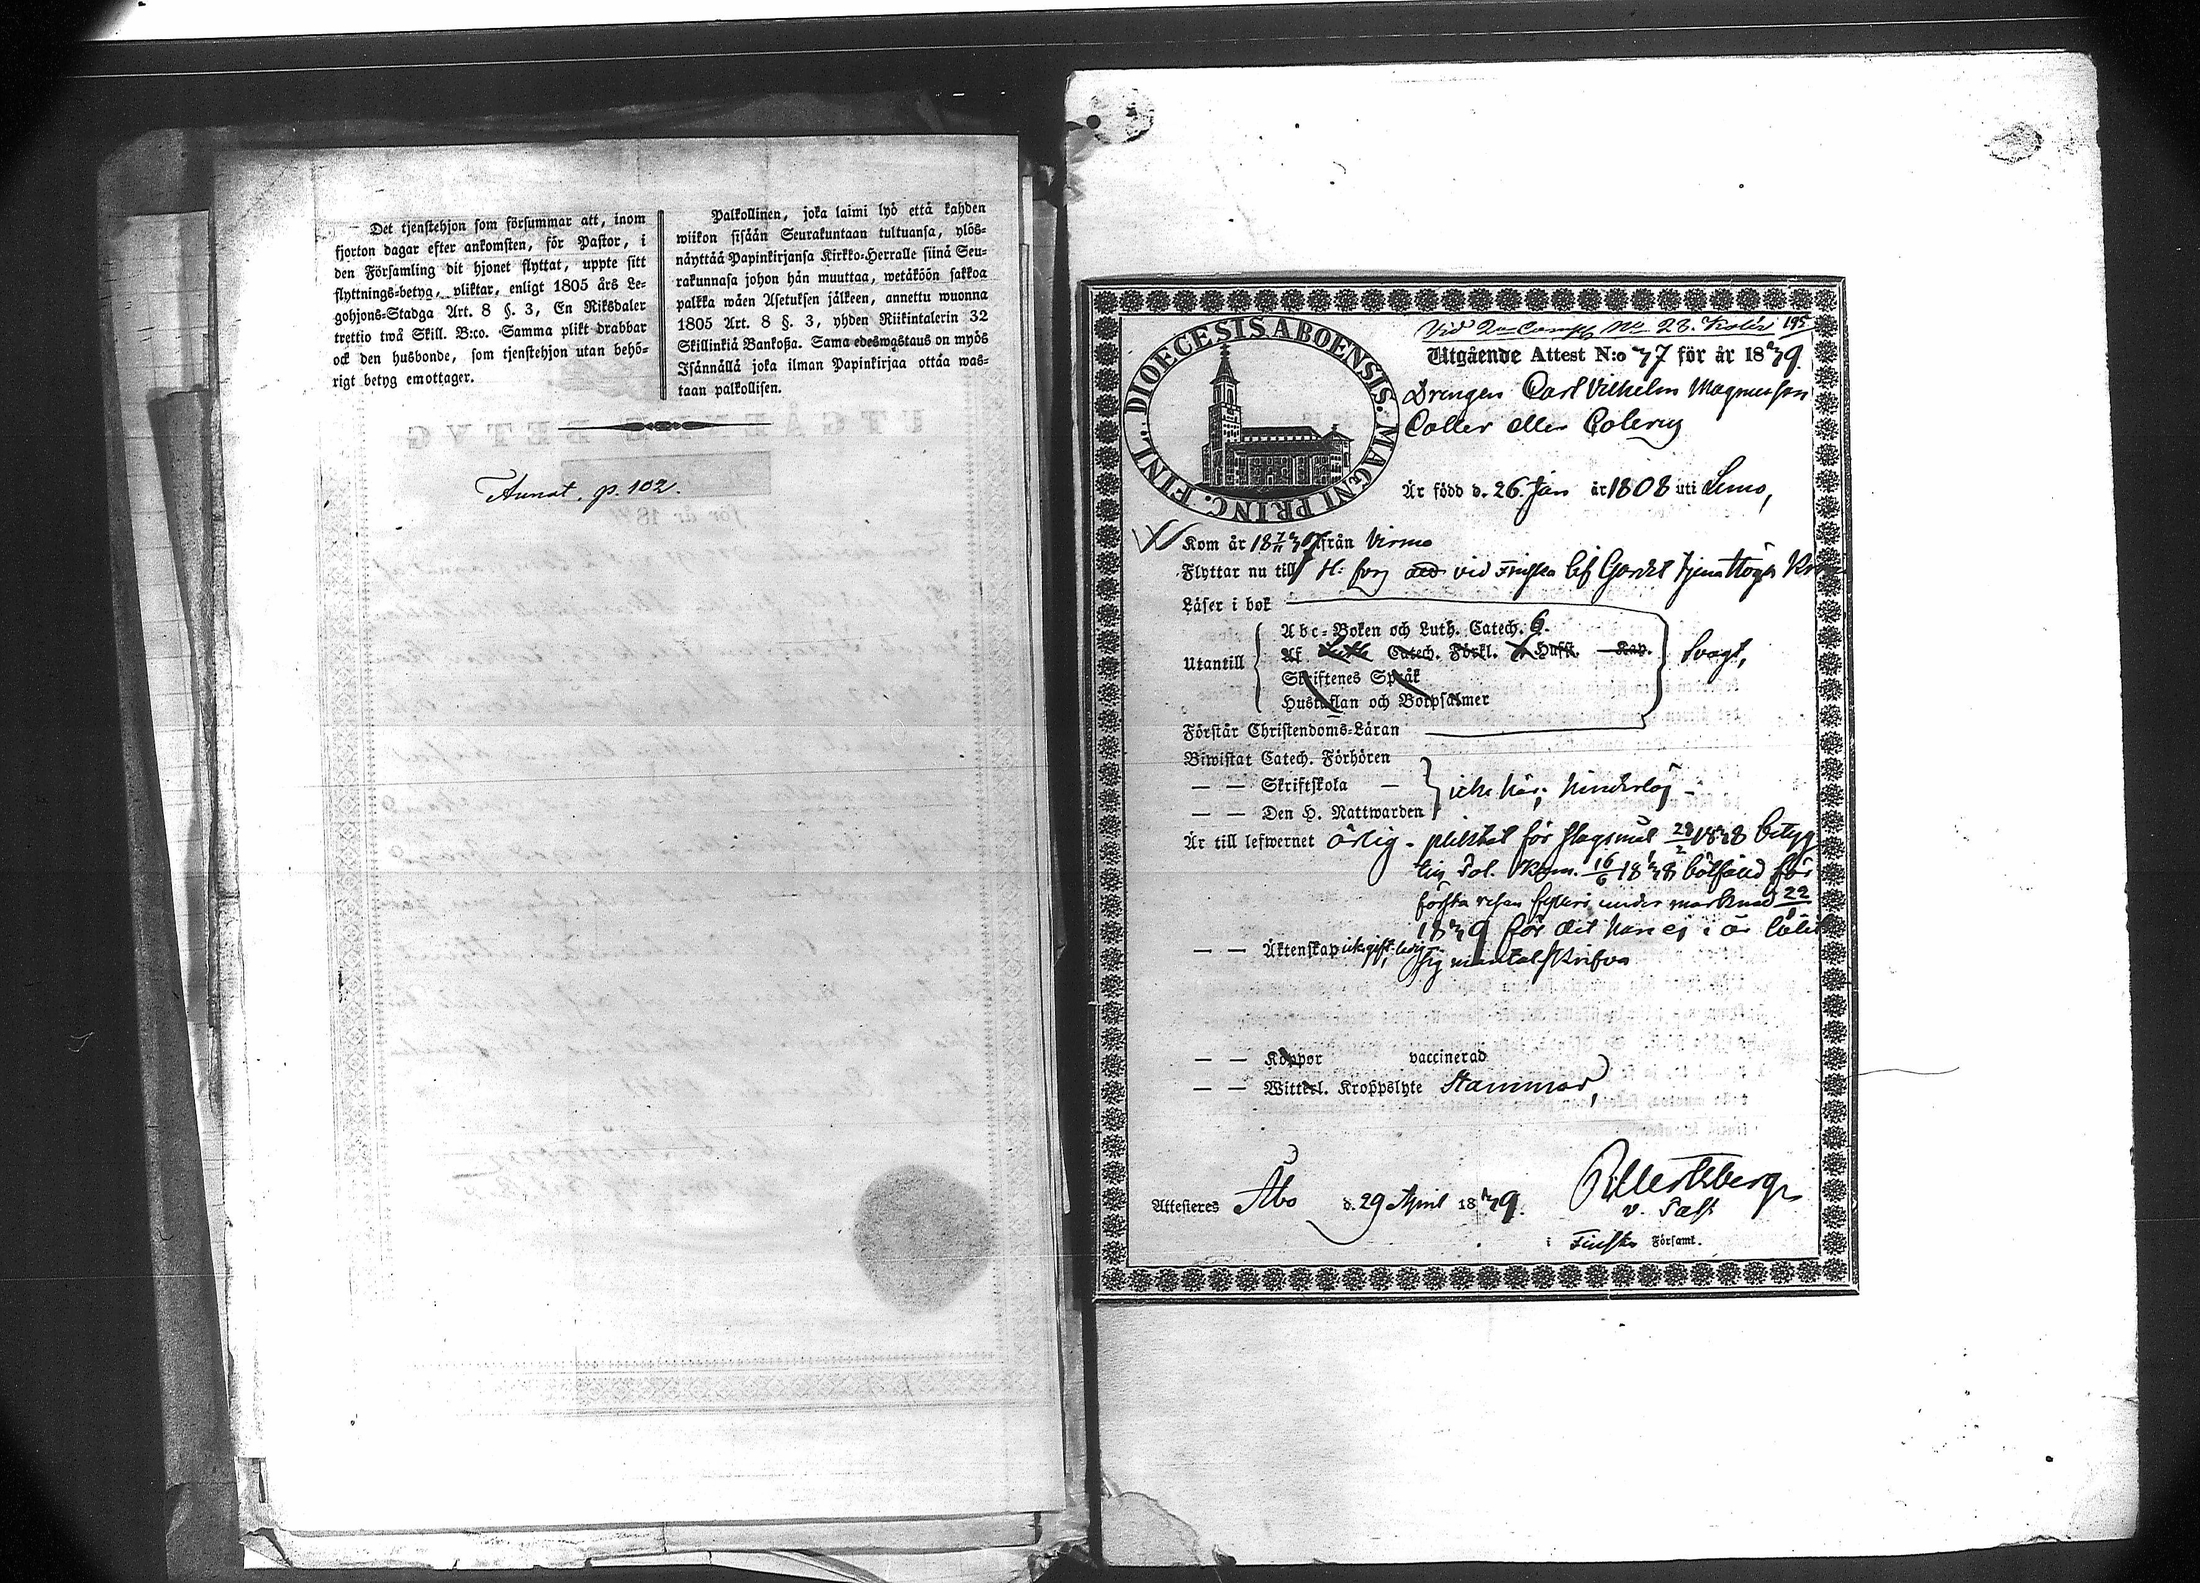 Det tjenstehjon som försummar att, inom
fjorton dagar efter ankomsten, för Pastor, i
den Församling dit hjonet flyttat, uppte sitt
flyttnings-betyg, pliktar, enligt 1805 års Le-
gohjons-Stadga Art. 8 §. 3, En Riksdaler
trettio twå Skill. B:co. Samma plikt drabbar
ock den husbonde, som tjenstehjon utan behö-
rigt betyg emottager.
Palkollinen, joka laimi lyö että kahden
wiikon sisään Seurakuntaan tultuansa, ylös-
näyttää Papinkirjansa Kirkko-Herralle siinä Seu-
rakunnasa johon hän muuttaa, wetäköön sakkoa
palkka wäen Asetuksen jälkeen, annettu wuonna
1805 Art. 8 §. 3, yhden Riikintalerin 32
Skillinkiä Bankoßa. Sama edeswastaus on myös
Isännällä joka ilman Papinkirjaa ottaa was-
taan palkollisen.
Annot. p. 102.
DIOECESIS ABOENSIS. MAGNI PRINC. FINL.
Vid 2ne Comp. No 28. Kolér 195
Utgående Attest N:o 77 för år 1839.
Drengen Carl Vilhelm Magnusson
Coller eller Colerus
Är född d. 26 Jan år 1808 uti Lemo,
Kom år 18 från Virmo
Flyttar nu till vid Finska lif Gardet
Läser i bok
Utantill
Abc-Boken och Luth. Catech. 6.
Af Catech. Förkl. Hufst. Kap.
Skriftenes Språk
Hustaflan och Botpsalmer
Svagt,
Förstår Christendoms-Läran
Biwistat Catech. Förhören
— — Skriftskola —
— — Den H. Nattwarden
icke här; hinderlös
Är till lefwernet ärlig - pliktat för slagsmål 28/2 1838 betyg
16/6 1838 bötfäld för
första resan fylleri under marknad 22
1839 för det han ej i år låtit
— — Äktenskap ick gift, ledig sig mantalsskrifva
— — Koppor vaccinerad
— — Witterl. Kroppslyte Stammar,
Attesteres Åbo d. 29 April 1839.
v. Past.
i Finska Församl.